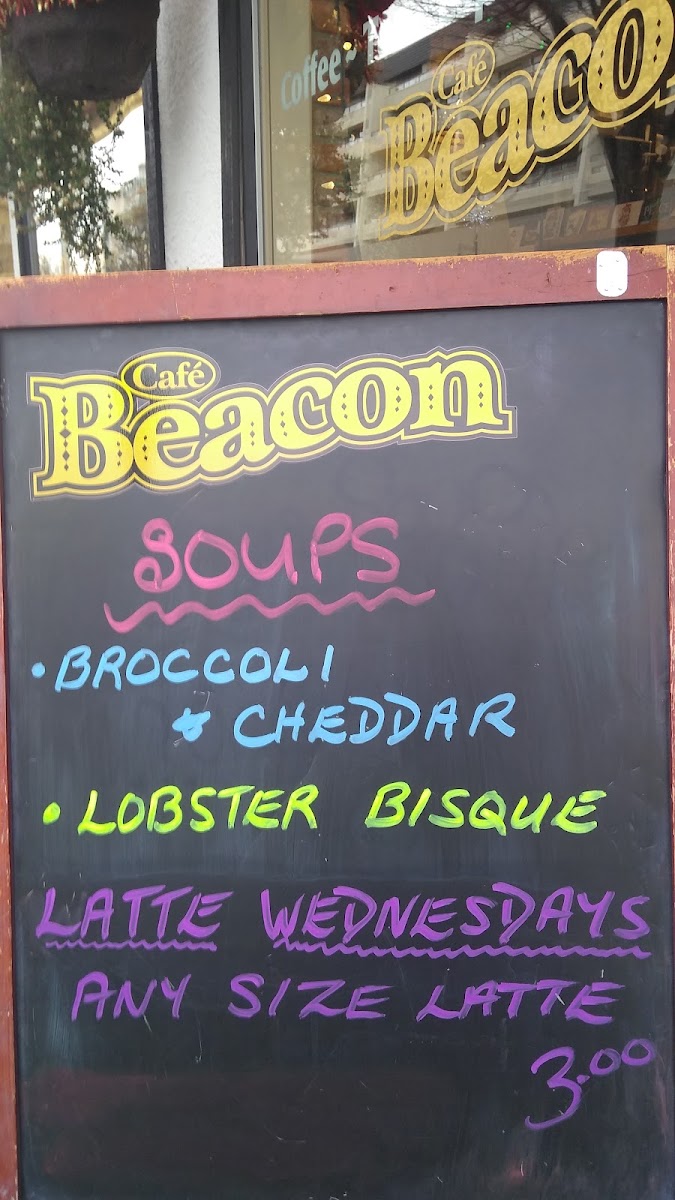 Coffee ~
Café
Beacon
Café
Beacon
SOUPS
• BROCCOLI
& CHEDDAR
• LOBSTER BISQUE
LATTE WEDNESDAYS
ANY SIZE LATTE
3.00